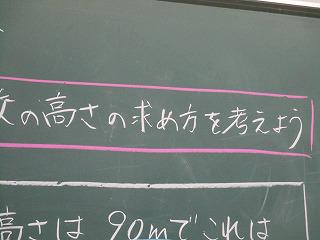 の高さの求め方を考えよう
高さは 90mでこれは